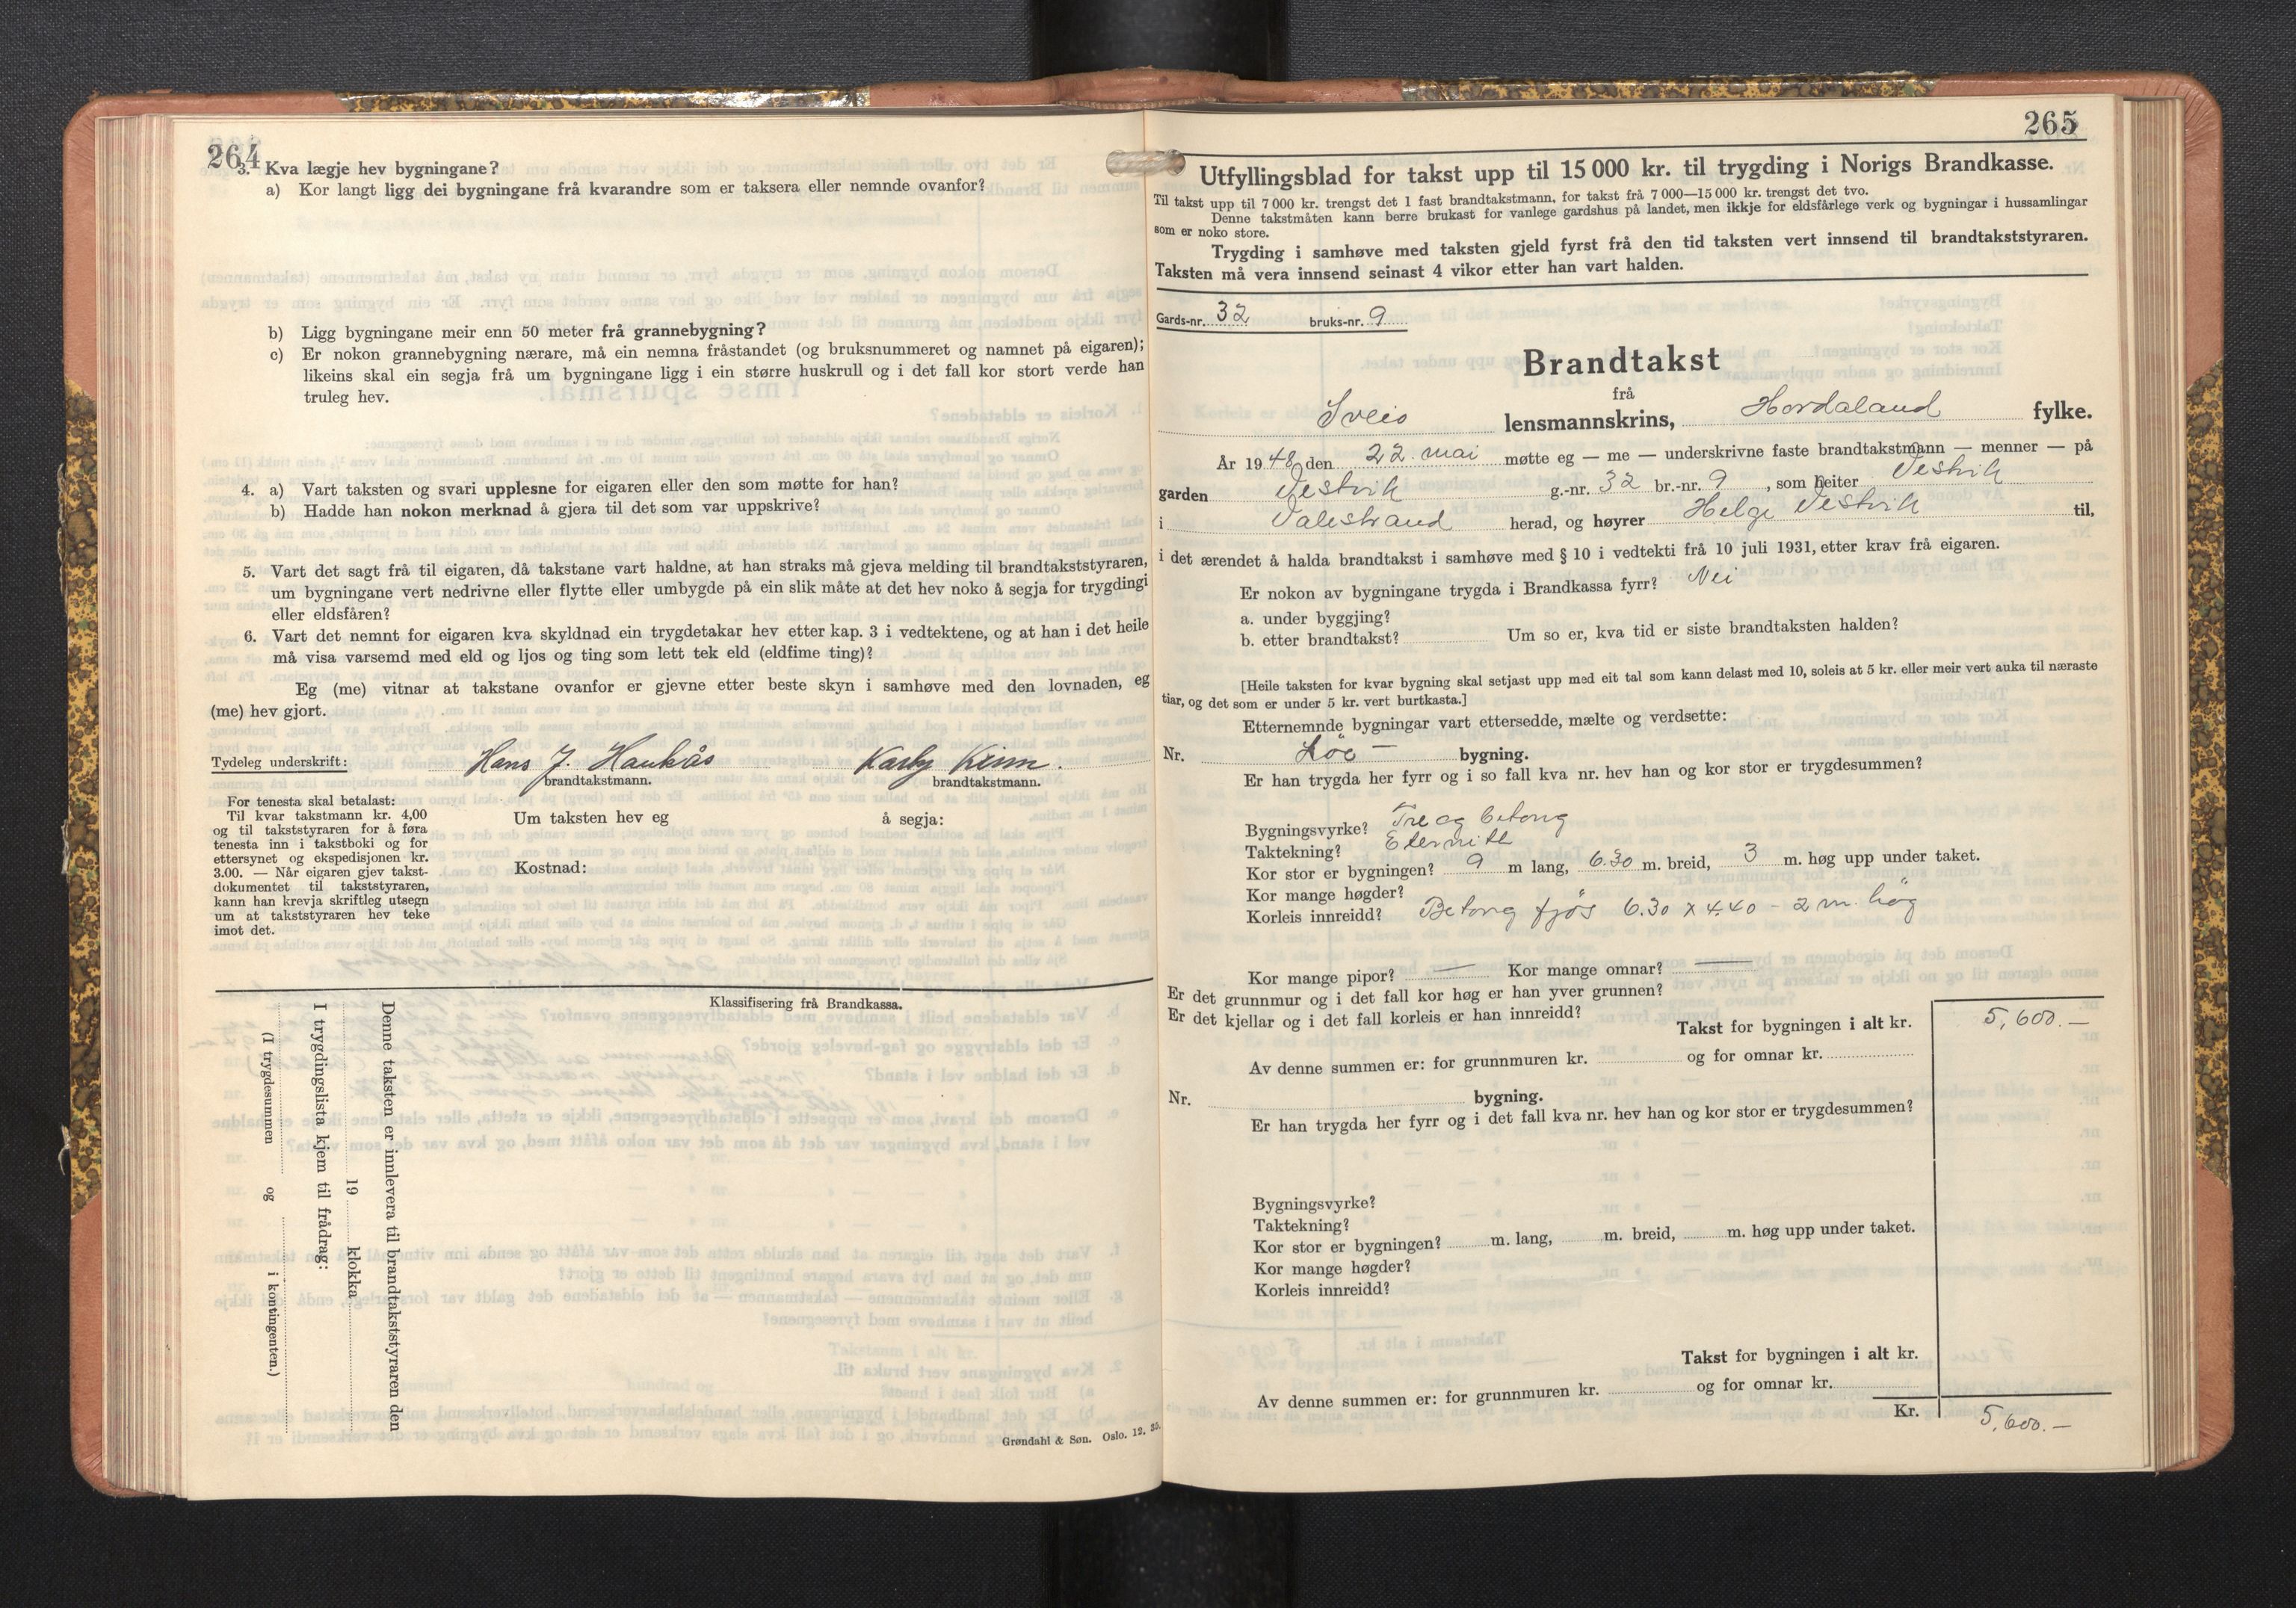 264
3. Kva lægje hev bygningane?
a) Kor langt ligg dei bygningane frå kvarandre som er taksera eller nemnde ovanfor?
b) Ligg bygningane meir enn 50 meter frå grannebygning?
c) Er nokon grannebygning nærare, må ein nemna fråstandet (og bruksnummeret og namnet på eigaren);
likeins skal ein segja frå um bygningane ligg i ein større huskrull og i det fall kor stort verde han
truleg hev.
4. a) Vart taksten og svari upplesne for eigaren eller den som møtte for han?
b) Hadde han nokon merknad å gjera til det som var uppskrive?
5. Vart det sagt frå til eigaren, då takstane vart haldne, at han straks må gjeva melding til brandtakststyraren,
um bygningane vert nedrivne eller flytte eller umbygde på ein slik måte at det hev noko å segja for trygdingi
eller eldsfåren?
6. Vart det nemnt for eigaren kva skyldnad ein trygdetakar hev etter kap. 3 i vedtektene, og at han i det heile
må visa varsemd med eld og ljos og ting som lett tek eld (eldfime ting)?
Eg (me) vitnar at takstane ovanfor er gjevne etter beste skyn i samhøve med den lovnaden, eg
(me) hev gjort.
Tydeleg underskrift: Hans J. Haukås
brandtakstmann. brandtakstmann.
For tenesta skal betalast:
Til kvar takstmann kr. 4,00
og til takststyraren for å føra
tenesta inn i takstboki og for
ettersynet og ekspedisjonen kr.
3.00. — Når eigaren gjev takst-
dokumentet til takststyraren,
kann han krevja skriftleg utsegn
um at takststyraren hev teke
imot det.
Um taksten hev eg å segja:
Kostnad:
Klassifisering frå Brandkassa.
Denne taksten er innlevera til brandtakststyraren den
19 klokka
I trygdingslista kjem til frådrag:
(I trygdesummen og i kontingenten.)
Grøndahl & Søn. Oslo. 12. 35.
265
Utfyllingsblad for takst upp til 15 000 kr. til trygding i Norigs Brandkasse.
Til takst upp til 7 000 kr. trengst det 1 fast brandtakstmann, for takst frå 7 000—15 000 kr. trengst det tvo.
Denne takstmåten kann berre brukast for vanlege gardshus på landet, men ikkje for eldsfårlege verk og bygningar i hussamlingar
som er noko store.
Trygding i samhøve med taksten gjeld fyrst frå den tid taksten vert innsend til brandtakststyraren.
Taksten må vera innsend seinast 4 vikor etter han vart halden.
Gards-nr. 32 bruks-nr. 9
Brandtakst
frå
Sveio lensmannskrins, Hordaland fylke.
År 1948 den 22 mai møtte eg — me — underskrivne faste brandtakstmann — menner — på
garden Vestvik g.-nr. 32 br.-nr. 9, som heiter Vestvik
i Valestrand herad, og høyrer Helge Vestvik til,
i det ærendet å halda brandtakst i samhøve med § 10 i vedtekti frå 10 juli 1931, etter krav frå eigaren.
Er nokon av bygningane trygda i Brandkassa fyrr? Nei
a. under byggjing?
b. etter brandtakst? Um so er, kva tid er siste brandtaksten halden?
[Heile taksten for kvar bygning skal setjast upp med eit tal som kann delast med 10, soleis at 5 kr. eller meir vert auka til næraste
tiar, og det som er under 5 kr. vert burtkasta.]
Etternemnde bygningar vart ettersedde, mælte og verdsette:
Nr. Löe — bygning.
Er han trygda her fyrr og i so fall kva nr. hev han og kor stor er trygdesummen?
Bygningsvyrke? Tre og betong
Taktekning? Eternitt
Kor stor er bygningen? 9 m lang, 6.30 m. breid, 3 m. høg upp under taket.
Kor mange høgder?
Korleis innreidd? Betong fjøs 6.30 x 4.40 - 2 m. høg
Kor mange pipor? — Kor mange omnar? —
Er det grunnmur og i det fall kor høg er han yver grunnen?
Er det kjellar og i det fall korleis er han innreidd?
Takst for bygningen i alt kr. 5,600.—
Av denne summen er: for grunnmuren kr. og for omnar kr.
Nr. bygning.
Er han trygda her fyrr og i det fall kva nr. hev han og kor stor er trygdesummen?
Bygningsvyrke?
Taktekning?
Kor stor er bygningen? m. lang, m. breid, m. høg upp under taket.
Kor mange høgder?
Korleis innreidd?
Takst for bygningen i alt kr.
Av denne summen er: for grunnmuren kr. og for omnar kr.
Kr. 5,600.—